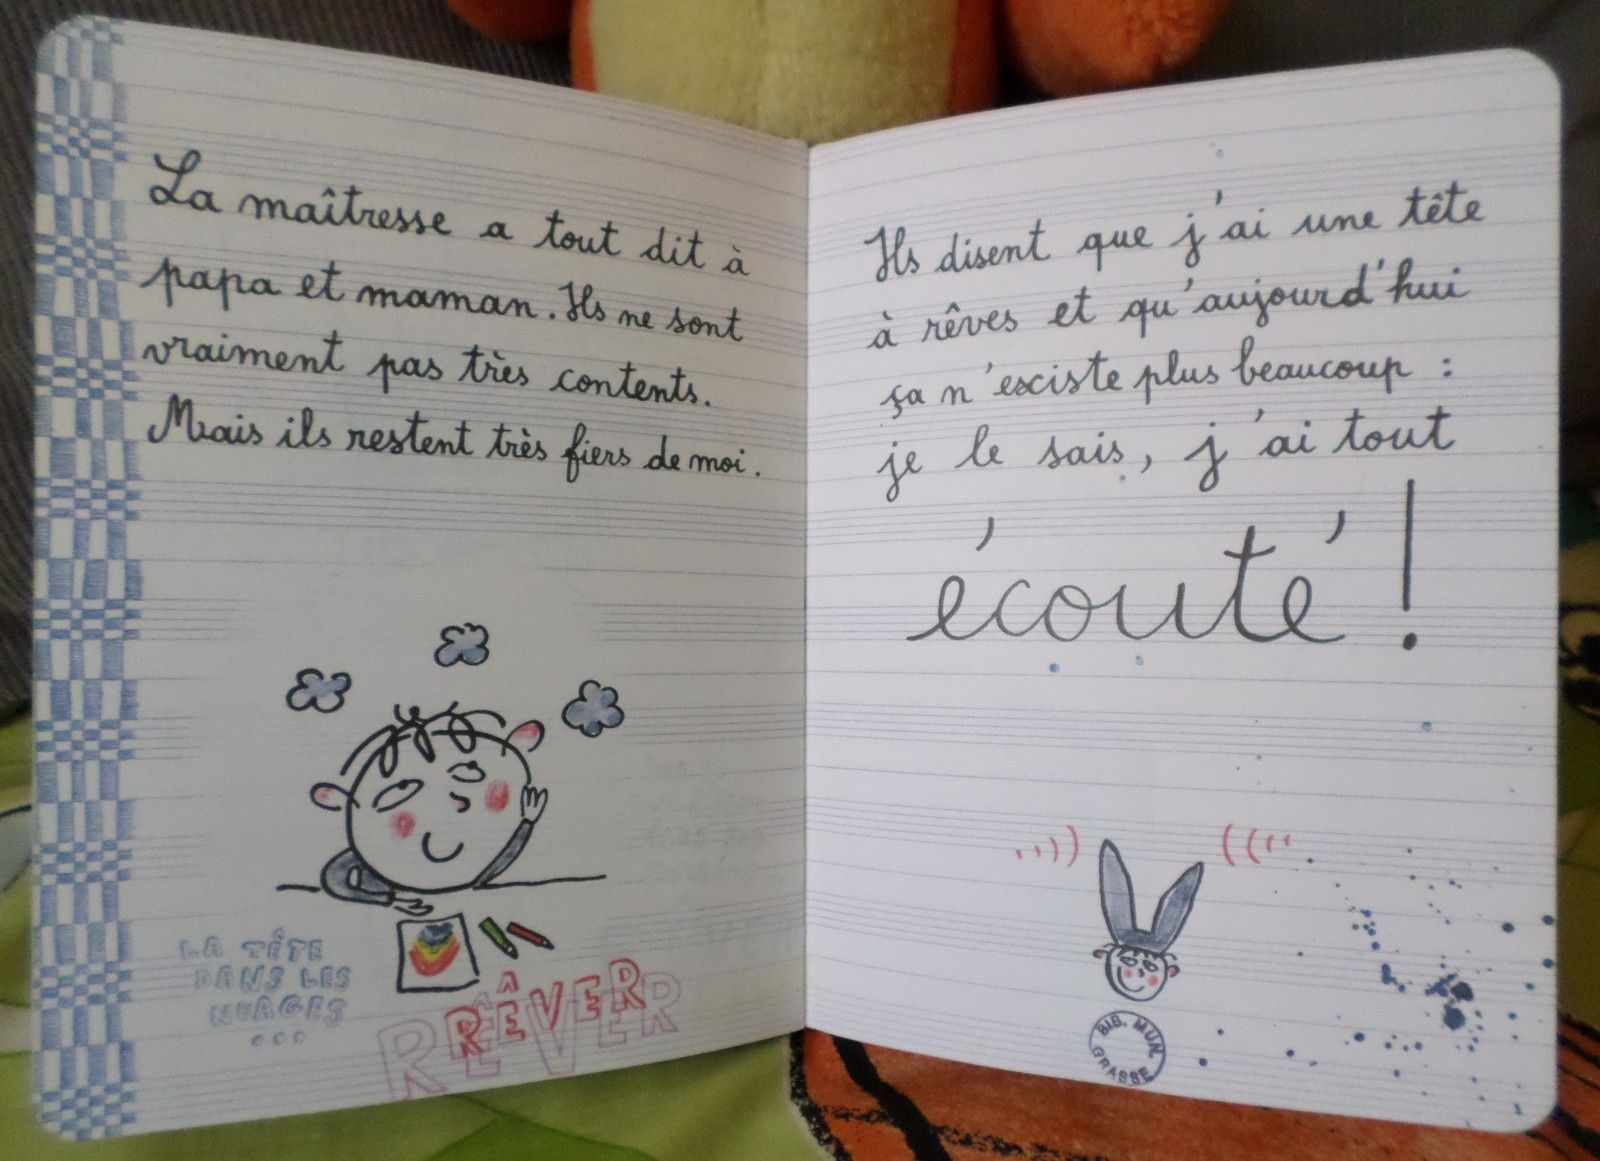 La maîtresse a tout dit à
papa et maman. Ils ne sont
vraiment pas très contents.
Mais ils restent très fiers de moi.
LA TÊTE
DANS LES
NUAGES
...
RÊVER
RÊVER
Ils disent que j'ai une tête
à rêves et qu'aujourd'hui
ça n'existe plus beaucoup :
je le sais, j'ai tout
écouté !
BIB. MUN.
GRASSE